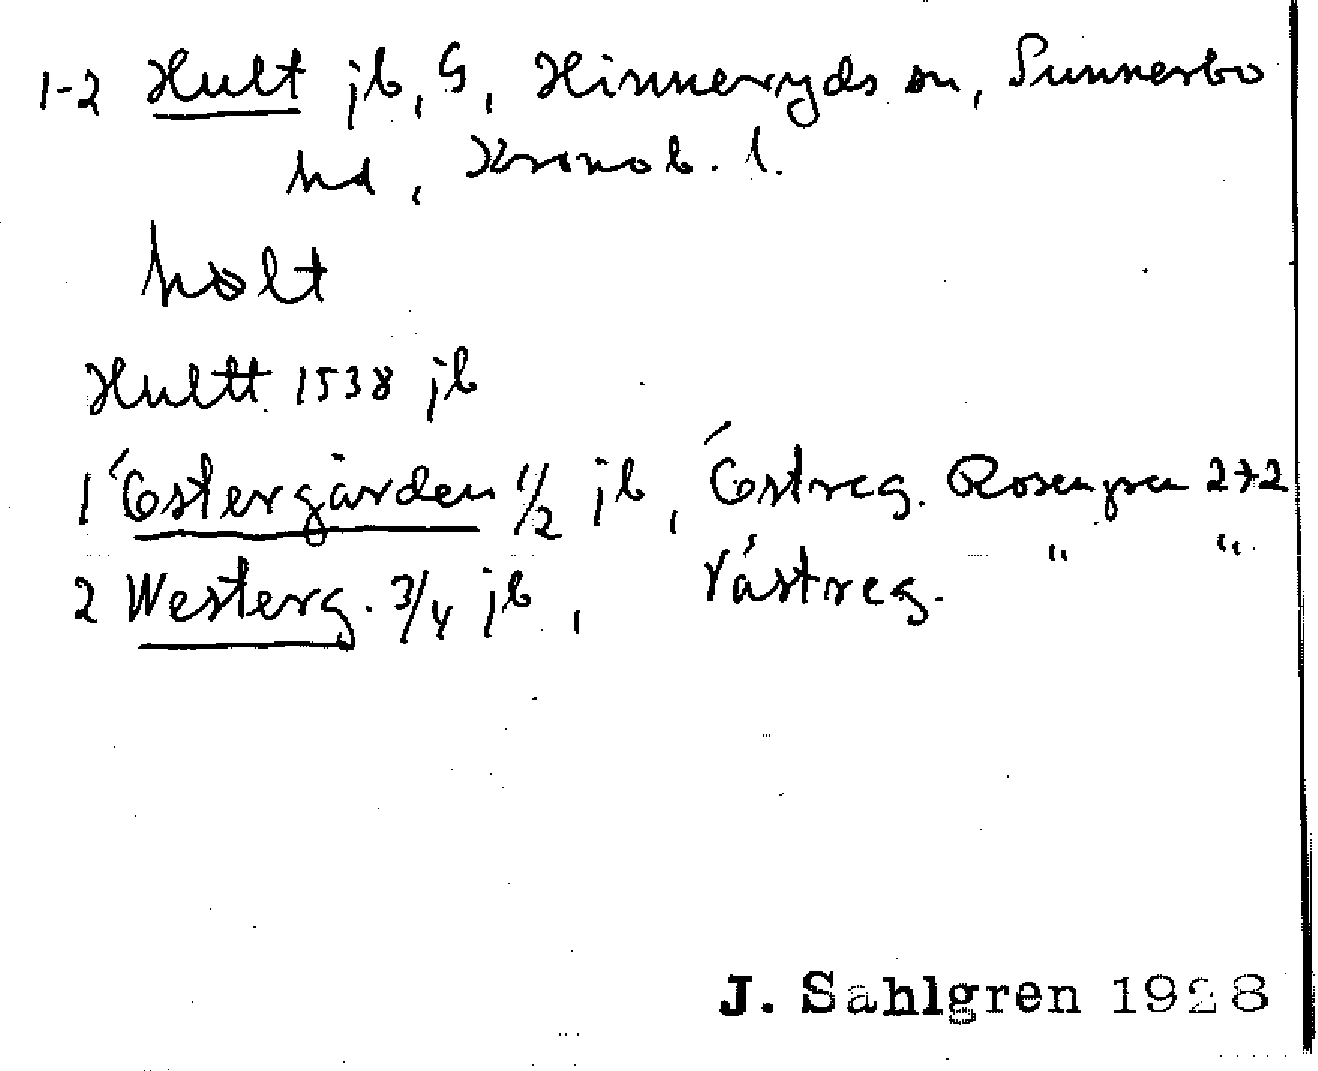 1-2 Hult jb, G, Hinneryds sn, Sunnerbo
hd, Kronob. l.
hølt
Hultt 1538 jb
1 Östergården 1/2 jb, Östreg. Rosengren 272
2 Westerg. 3/4 jb, Västreg. " "
J. Sahlgren 1928